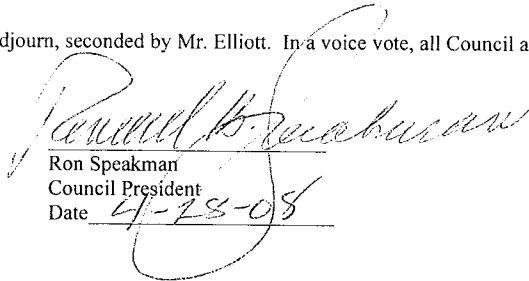 djourn, seconded by Mr. Elliott. In a voice vote, all Council a
Ron Speakman
Council President
Date 4-28-08